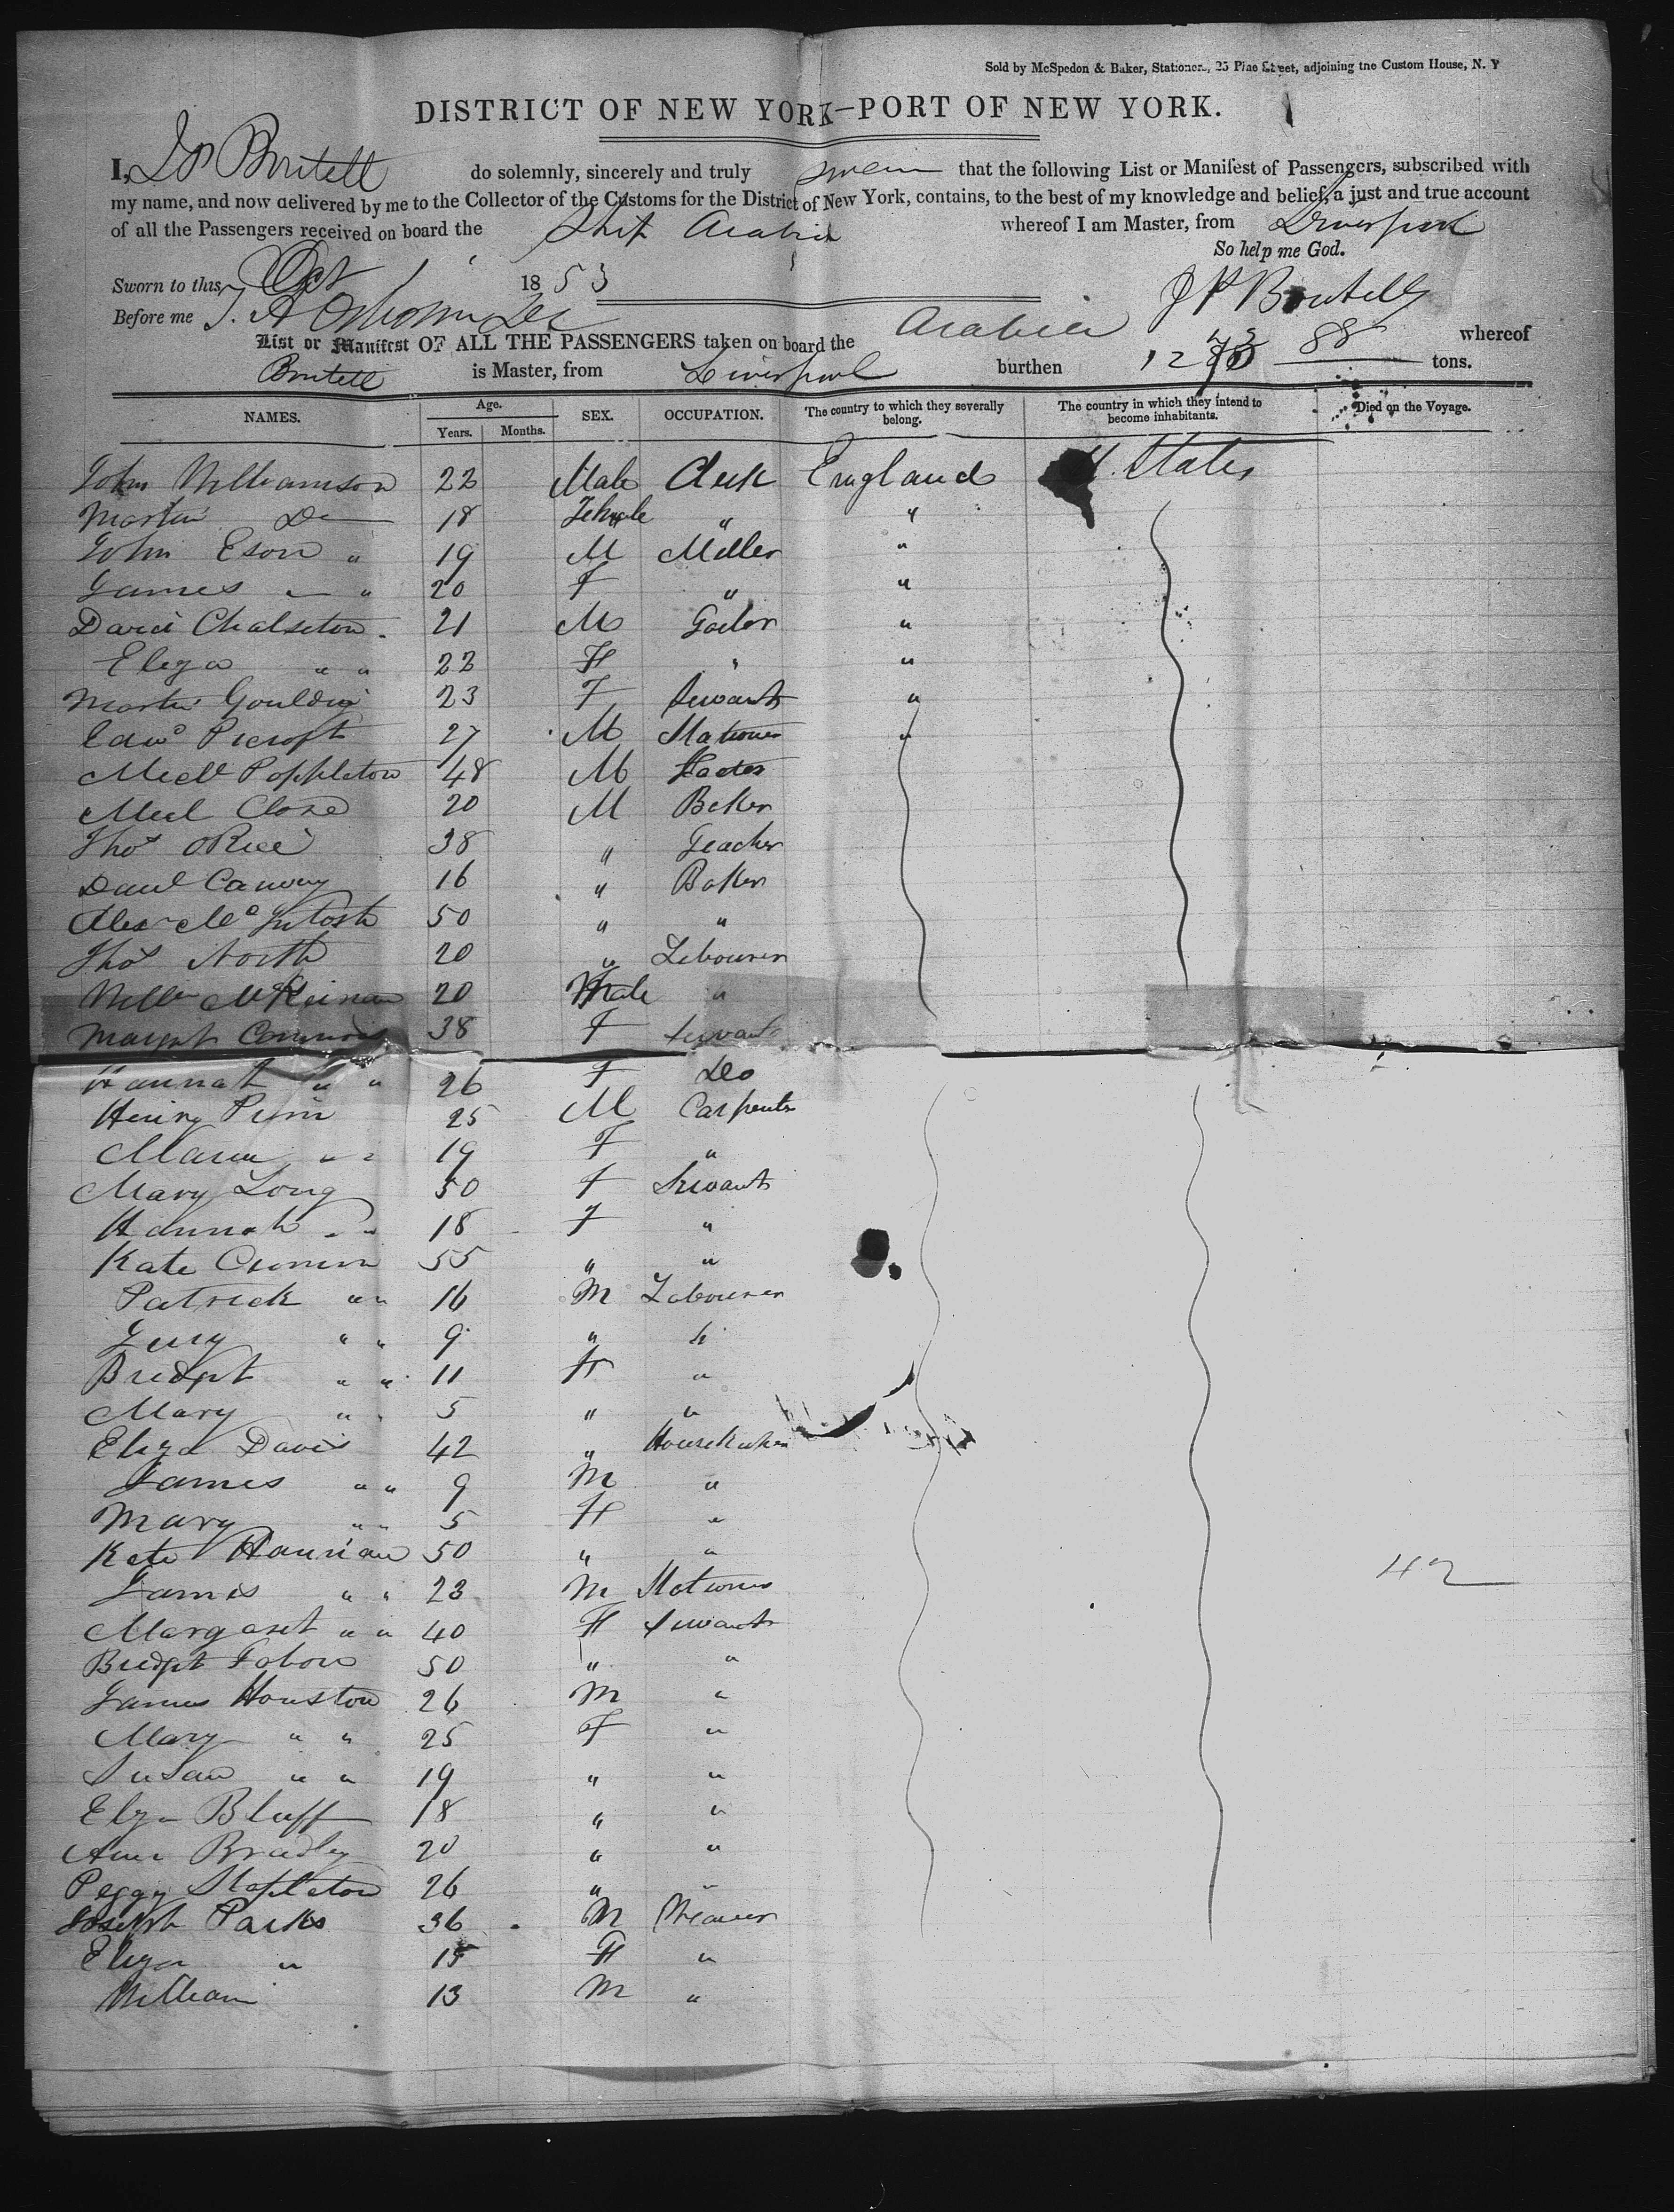 Sold by McSpedon & Baker, Stationers, 25 Pine Street, adjoining the Custom House, N. Y
DISTRICT OF NEW YORK—PORT OF NEW YORK.
I, J P Boutell do solemnly, sincerely and truly swear that the following List or Manifest of Passengers, subscribed with
my name, and now delivered by me to the Collector of the Customs for the District of New York, contains, to the best of my knowledge and belief, a just and true account
of all the Passengers received on board the Ship Arabia whereof I am Master, from Liverpool
So help me God.
Sworn to this, Oct 1 1853
J P Boutell
Before me
List or Manifest OF ALL THE PASSENGERS taken on board the Arabia whereof
Boutell is Master, from Liverpool burthen 88 tons.
NAMES. Age. Years. Months. SEX. OCCUPATION. The country to which they severally belong. The country in which they intend to become inhabitants. Died on the Voyage.
John Williamson 22 Male Clerk England U. States
Do 18 Female " "
John Eson " 19 M Miller "
James " " 20 F " "
21 M "
Eliza " " 22 F " "
23 F Servant "
Edwd 27 M "
Poppleton 48 M
Close 20 M Baker
Thos 38 " Teacher
16 " Baker
Alex McIntosh 50 " "
Thos North 20 " Labourer
20 Male "
Margt 38 F Servant
Hannah " " 26 F Do
Henry 25 M Carpenter
Maria " " 19 F "
Mary Long 50 F Servant
Hannah " " 18 F "
Kate 55 " "
Patrick " " 16 M Labourer
" " 9 "
Bridget " " 11 F "
Mary " " 5 " "
Eliza Davis 42 "
James " " 9 M "
Mary " " 5 F "
Kate 50 " "
James " " 23 M
42
Margaret " " 40 F Servant
Bridget 50 " "
James Houston 26 M "
Mary " " 25 F "
Susan " " 19 " "
Eliza Bluff 18 " "
Ann Bradley 20 " "
Peggy Stapleton 26 " "
Joseph Parks 36 M Weaver
Eliza " 15 F "
William 13 M "